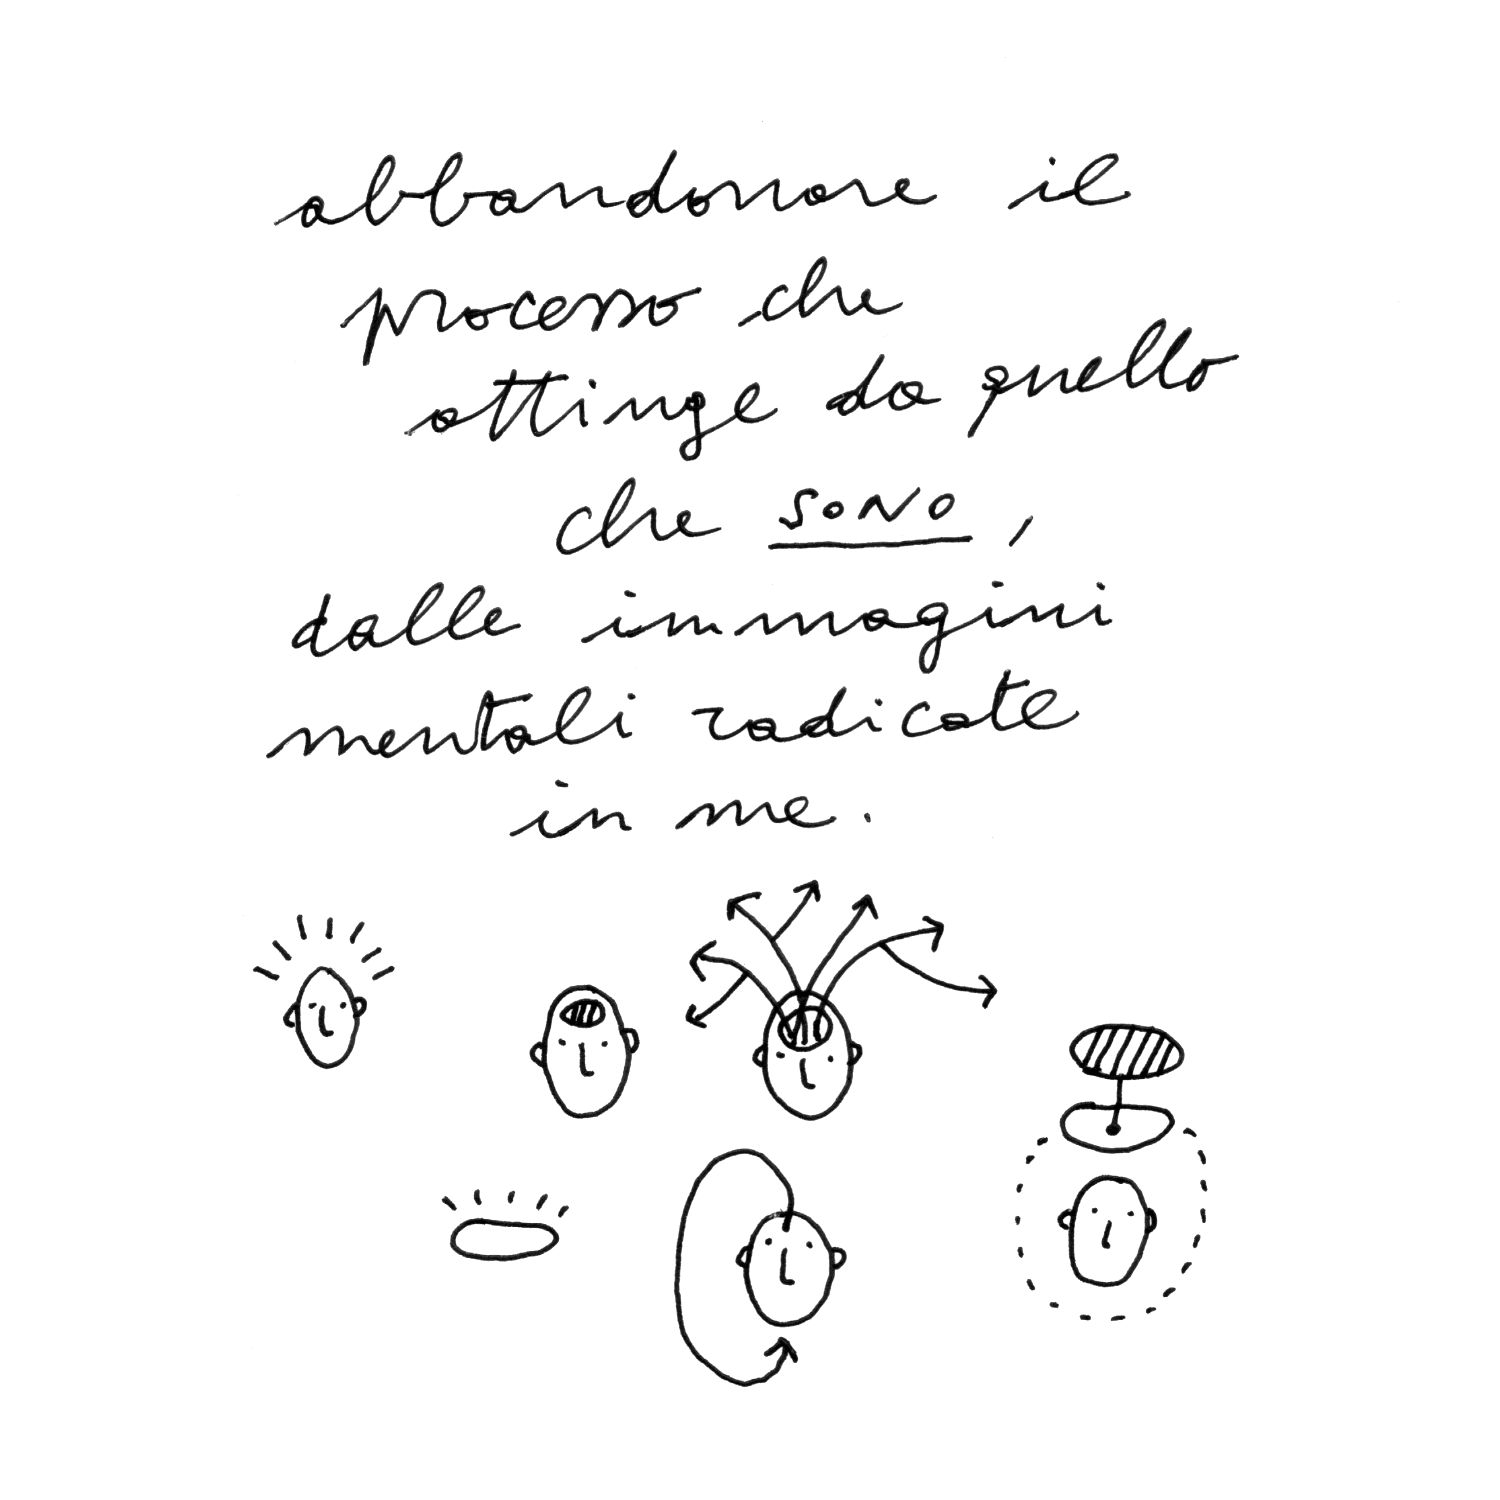 abbandonare il
processo che
attinge da quello
che SONO,
dalle immagini
mentali radicate
in me.